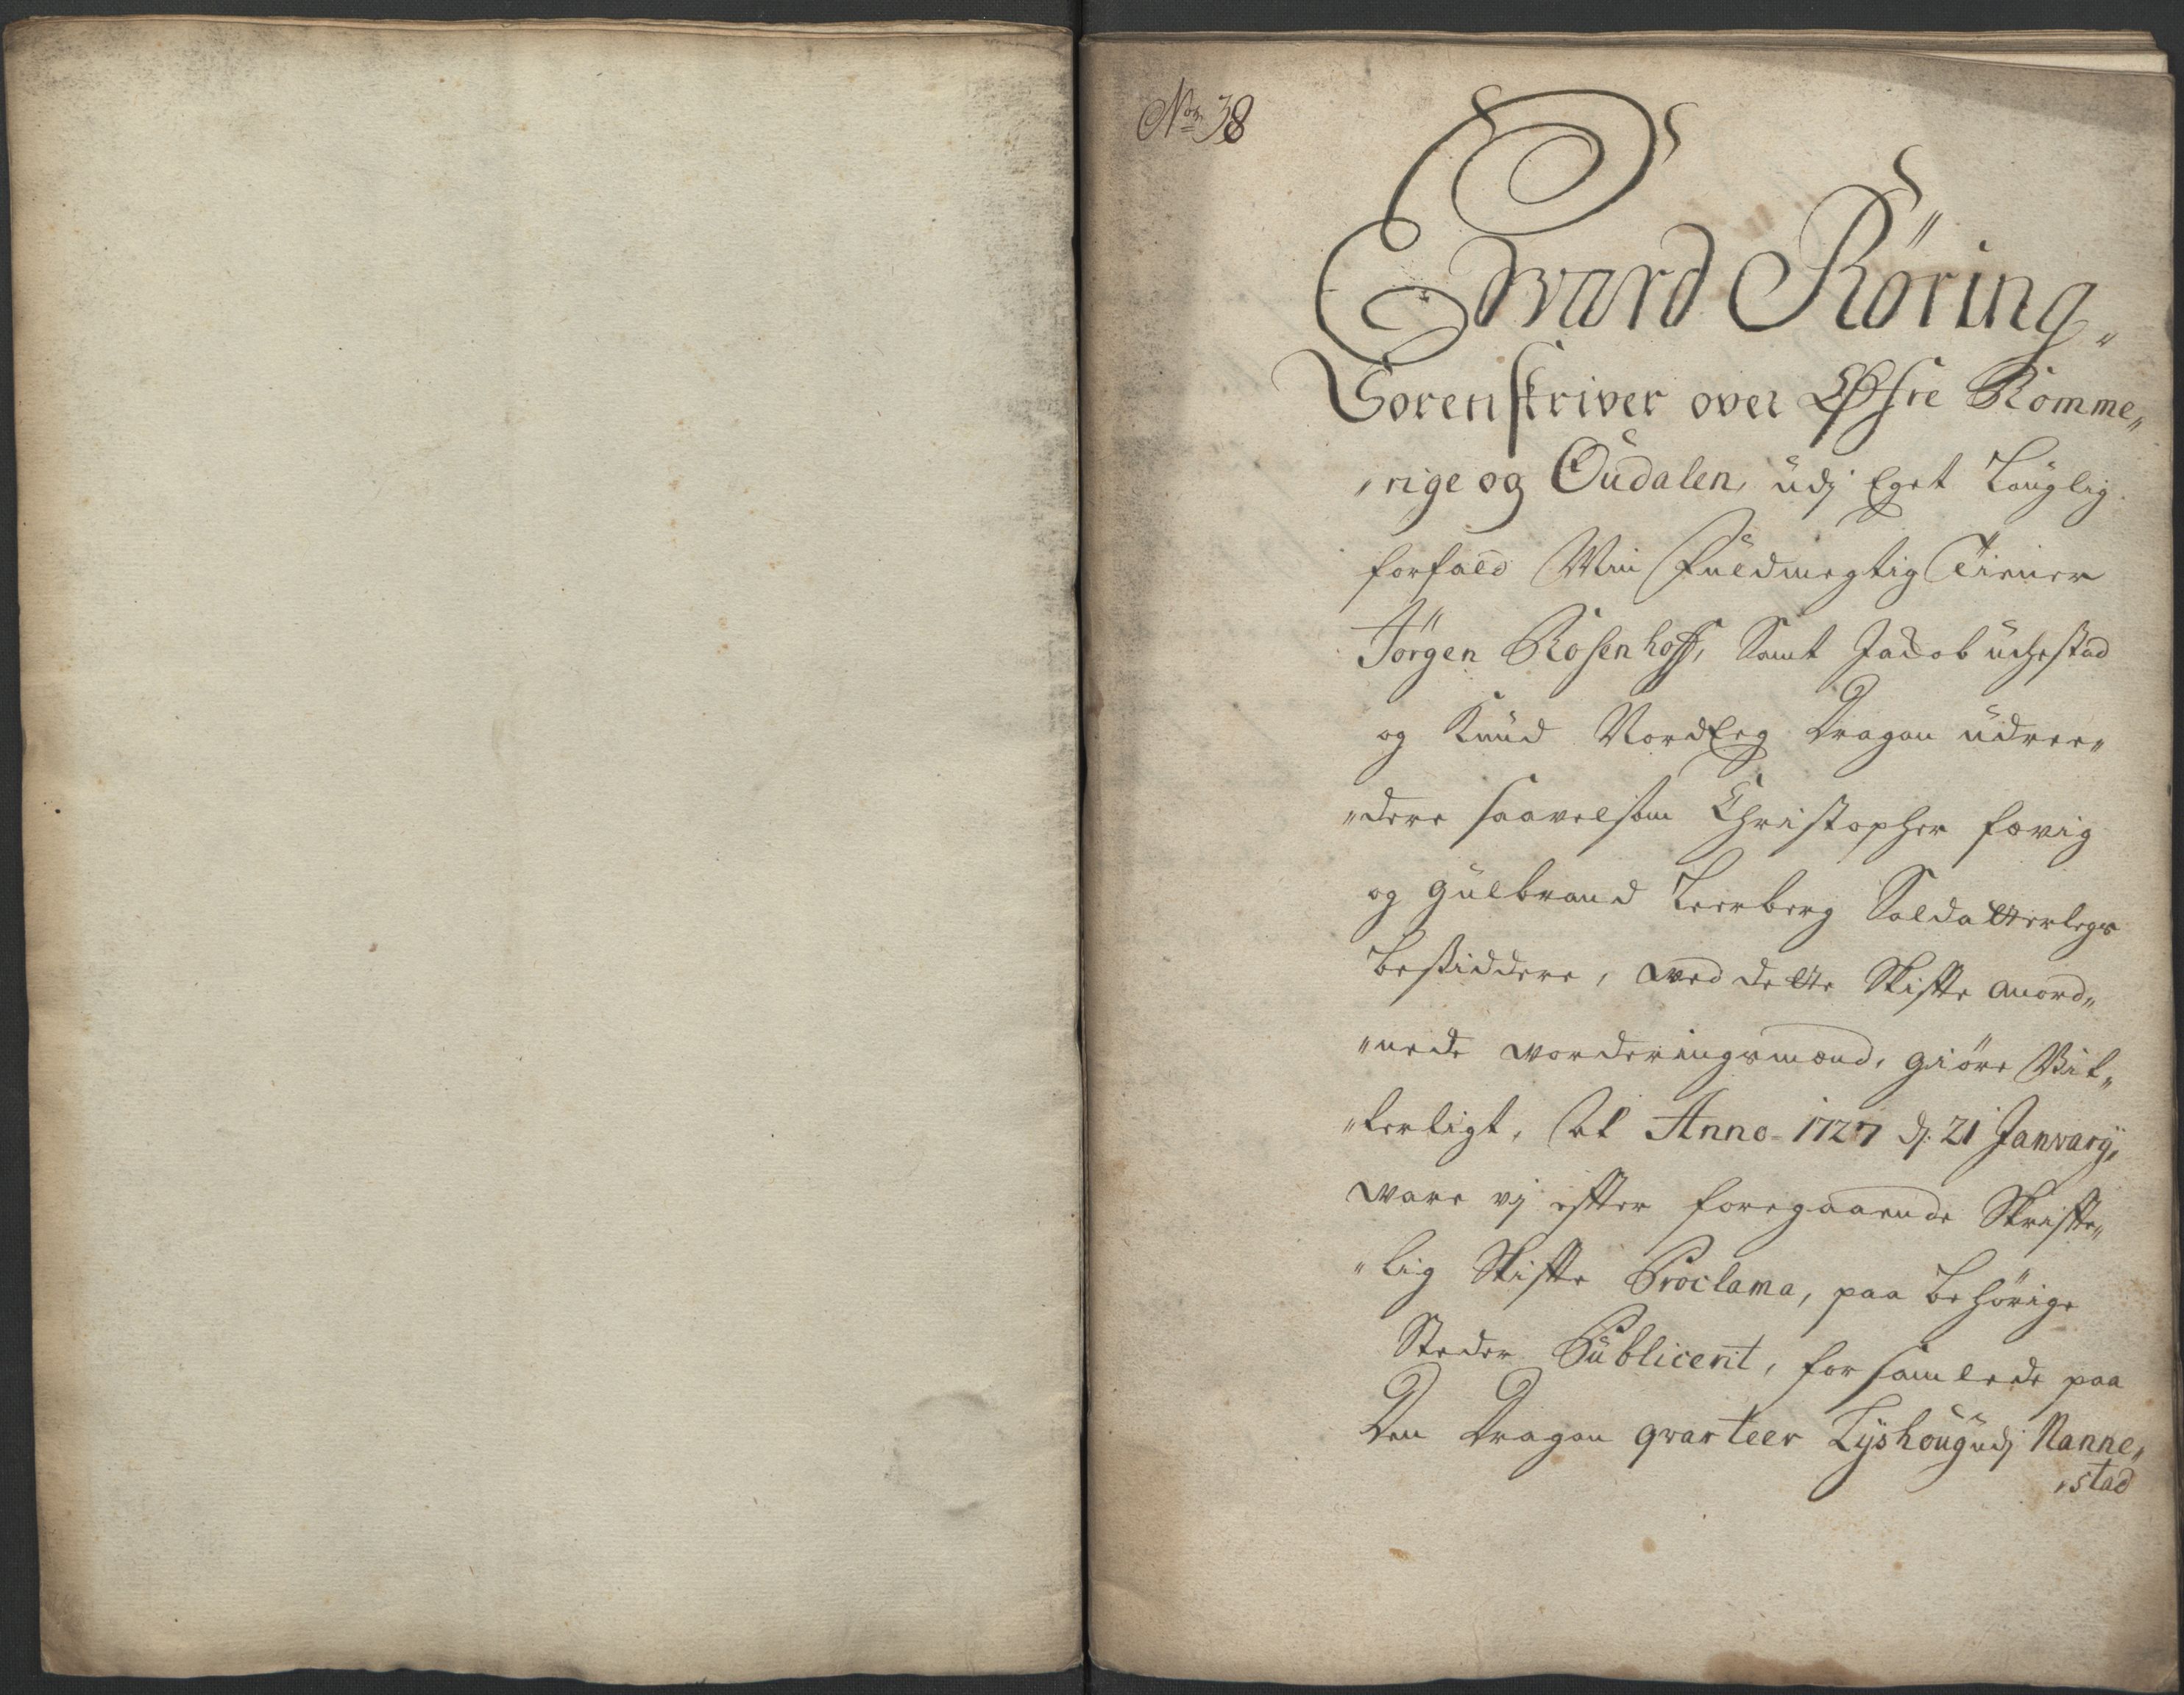 No 38
Edvard Röring
Sorenskriver over Öfre Romme„
„rige og Oudalen, udj Eget Lauglig
forfald Min Fuldmegtig Tiener
Jörgen Rosenhoff, Samt Jacob
og Knud Nordbye Dragon udree„
„dere saavelsom Christopher
og Gulbrand Leerberg Soldatterlegs
besiddere, Wed dette Skiffte anord„
„nede worderingsmænd, giöre Vit„
„terligt, At Anno 1727 dj: 21 January,
ware vj effter foregaaende Skriffte„
„lig Skiffte Proclama, paa behörige
Steder Publicerit, forsamlede paa
Den Dragon qvarteer Lyshoug udj Nanne„
„stad